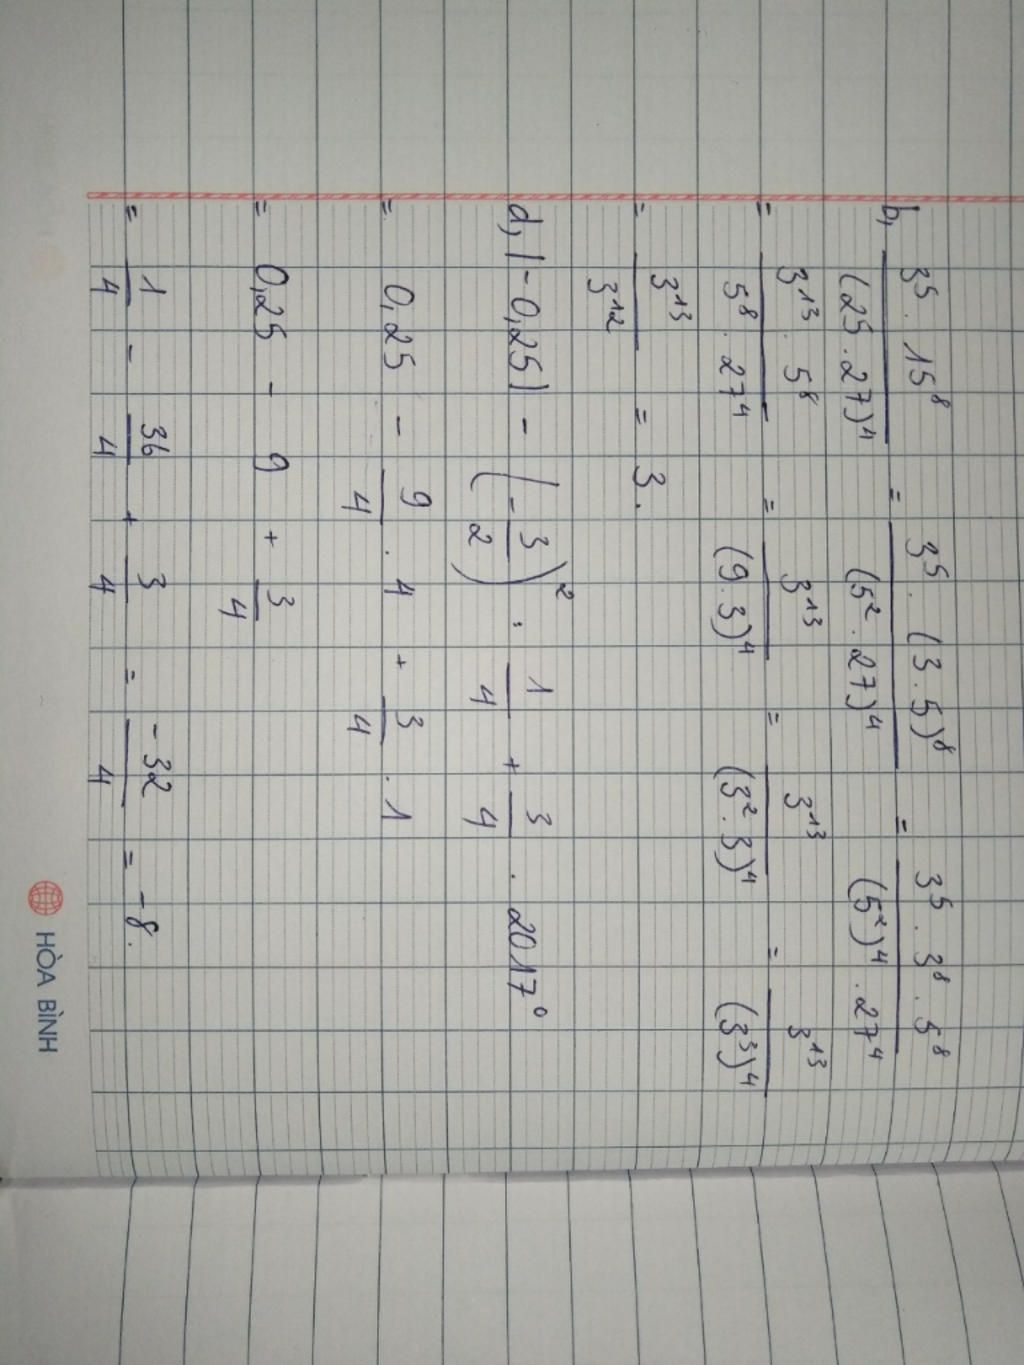 b, 3⁵ . 15⁸ / (25 . 27)⁴ = 3⁵ . (3 . 5)⁸ / (5² . 27)⁴ = 3⁵ . 3⁸ . 5⁸ / (5²)⁴ . 27⁴
= 3¹³ . 5⁸ / 5⁸ . 27⁴ = 3¹³ / (9 . 3)⁴ = 3¹³ / (3² . 3)⁴ = 3¹³ / (3³)⁴
= 3¹³ / 3¹² = 3.
d, |-0,25| - (-3/2)² : 1/4 + 3/4 . 2017⁰
= 0,25 - 9/4 . 4 + 3/4 . 1
= 0,25 - 9 + 3/4
= 1/4 - 36/4 + 3/4 = -32/4 = -8.
HÒA BÌNH